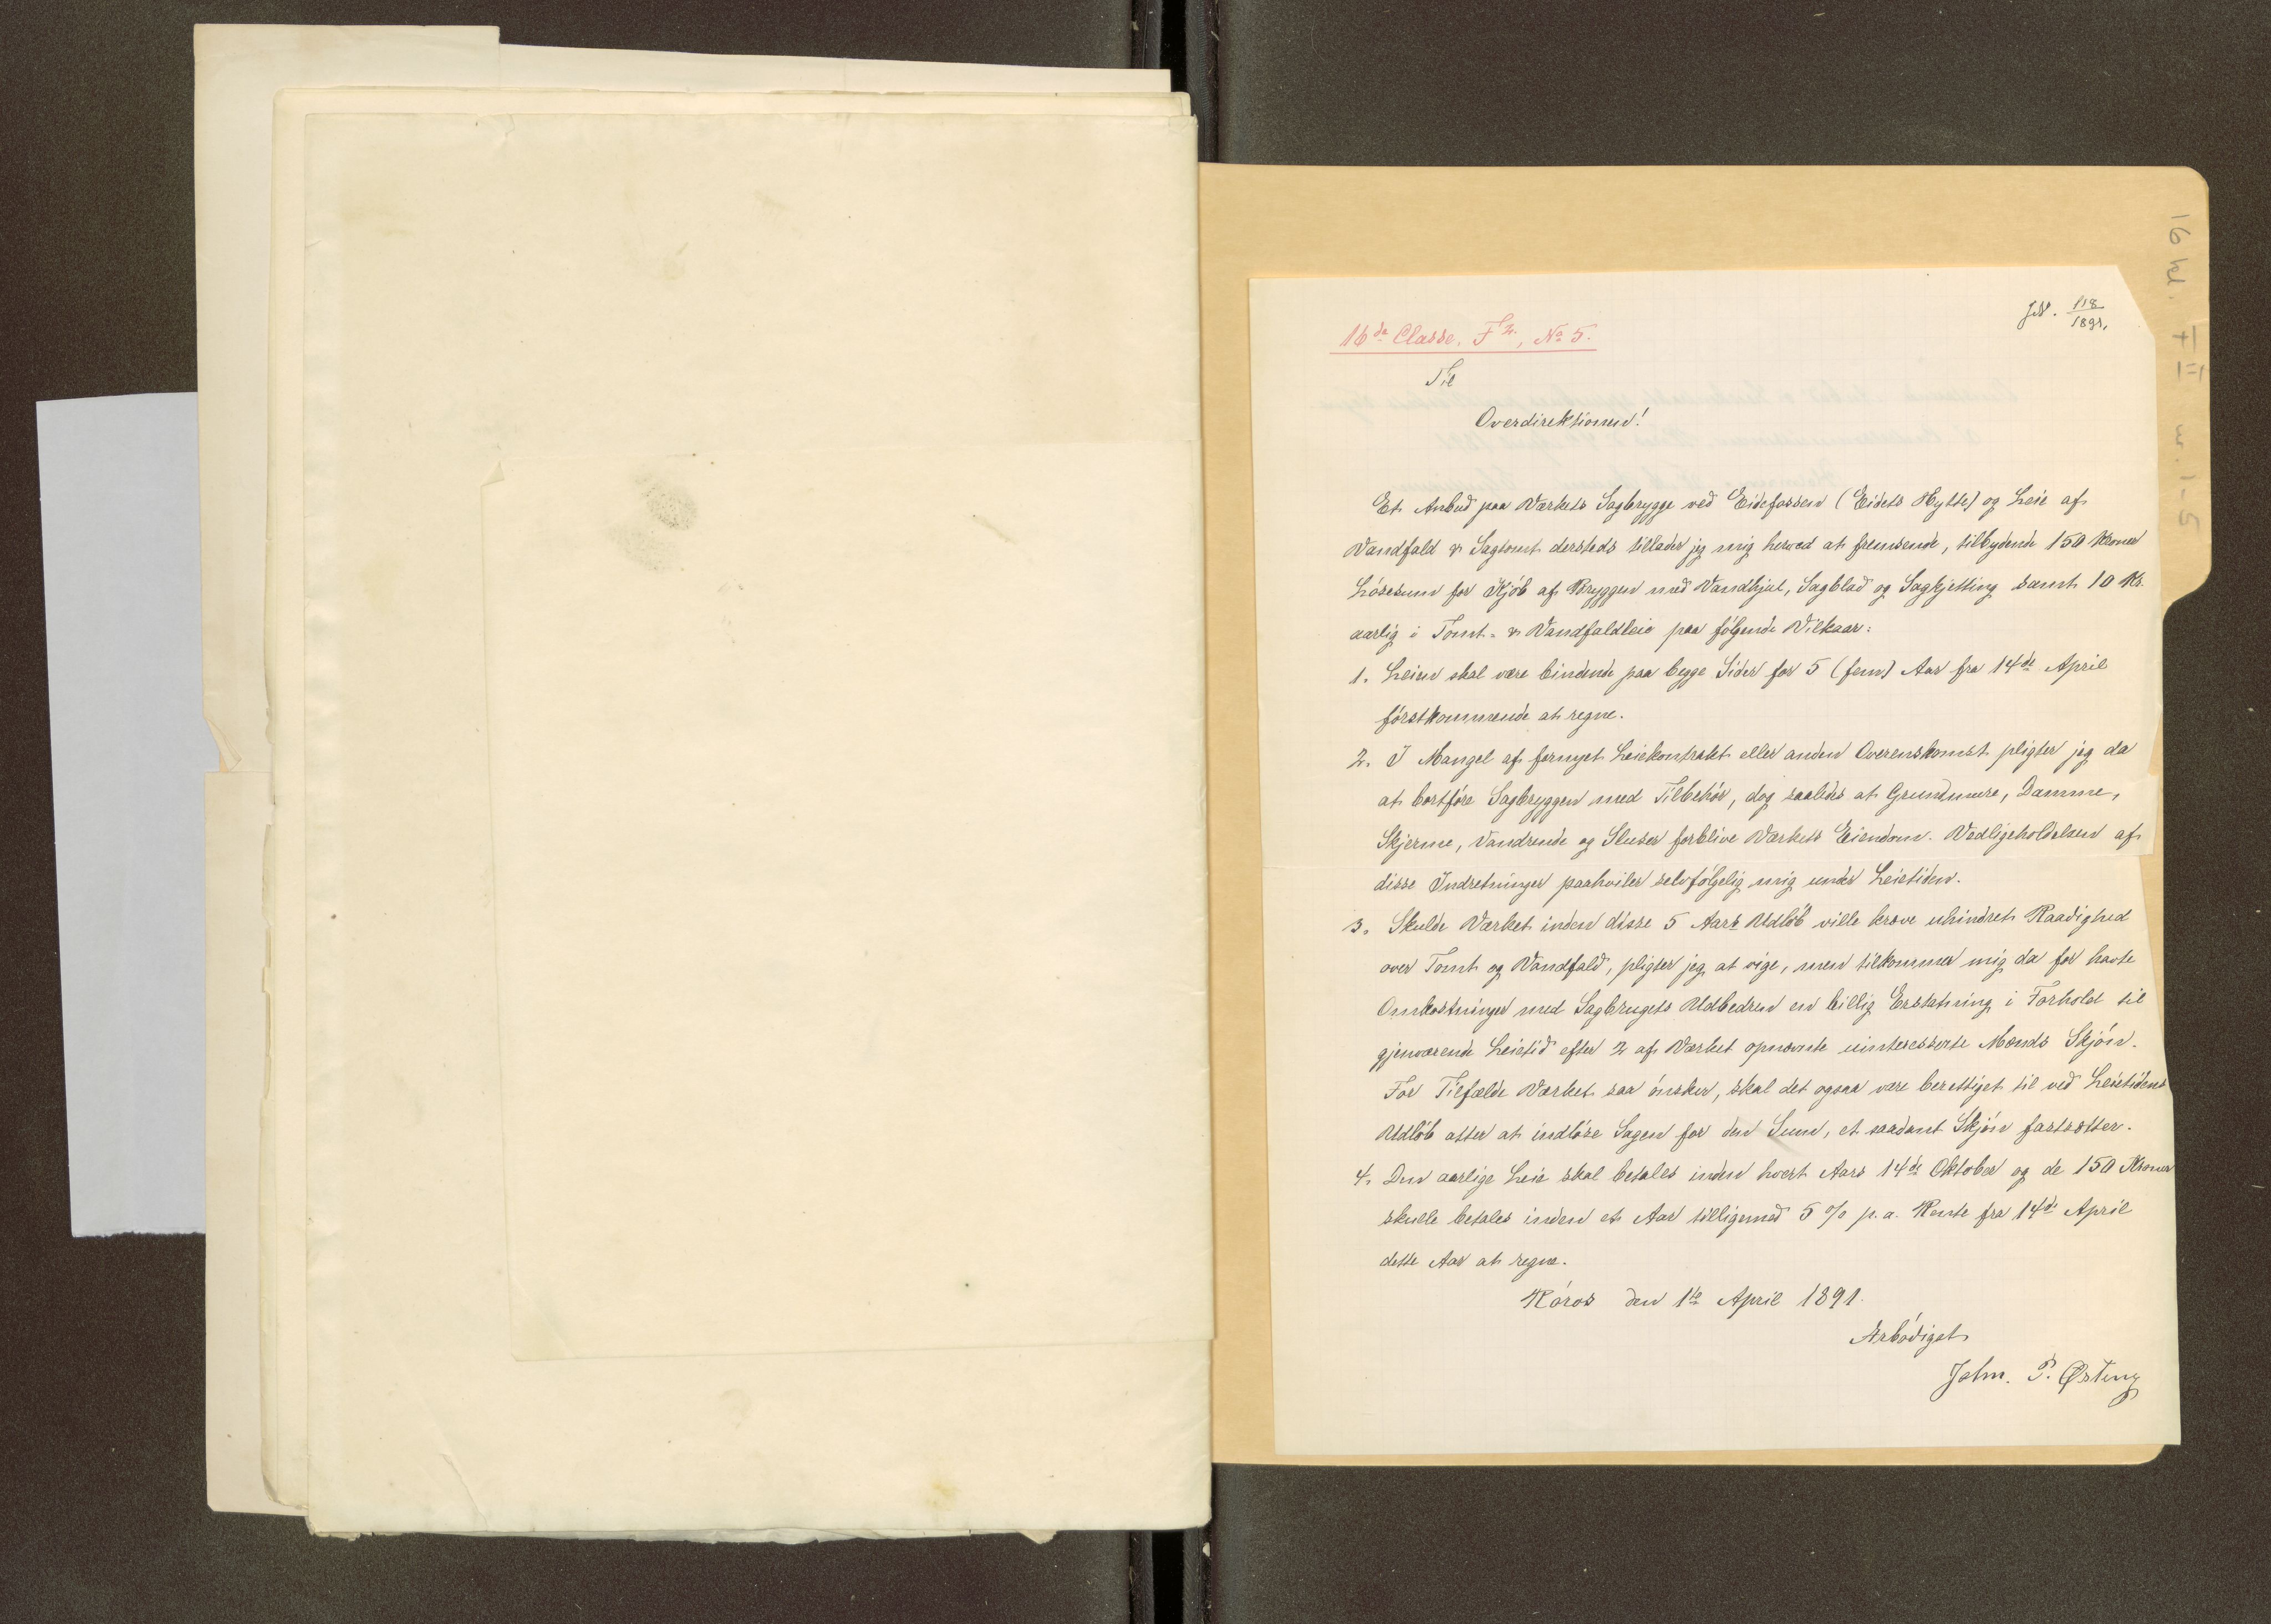 16 kl. F II nr. 1-5
JN. 118/1891.
16de Classe, F2., No 5.
Til
Overdirektionen!
Et Anbud paa Værkets Sagbrygge ved Eidefossen (Eidets Hytte) og Leie af
Vandfald & Sagtomt dersteds tillader jeg mig herved at fremsende, tilbydende 150 Kroner
Løsesum for Kjøb af Bryggen med Vandhjul, Sagblad og Sagkjetting samt 10 Kr.
aarlig i Tomt- & Vandfaldleie paa følgende Vilkaar:
1. Leien skal være bindende paa begge Sider for 5 (fem) Aar fra 14de April
førstkommende at regne.
2. I Mangel af fornyet Leiekontrakt eller anden Overenskomst pligter jeg da
at bortføre Sagbryggen med Tilbehør, dog saaledes at Grundmure, Damme,
Skjerme, Vandrende og Sluser forblive Værkets Eiendom. Vedligeholdelsen af
disse Indretninger paahviler selvfølgelig mig under Leietiden.
3. Skulde Værket inden disse 5 Aars Udløb ville kræve uhindret Raadighed
over Tomt og Vandfald, pligter jeg at vige, men tilkommer mig da for havte
Omkostninger med Sagbrugets Udbedren en billig Erstatning i Forhold til
gjenværende Leietid efter 2 af Værket opnævnte uinteresserte Mænds Skjøn.
For Tilfælde Værket saa ønsker, skal det ogsaa være berettiget til ved Leietidens
Udløb atter at indløse Sagen for den Sum, et saadant Skjøn fastsætter.
4. Den aarlige Leie skal betales inden hvert Aars 14de Oktober og de 150 Kroner
skulle betales inden et Aar tilligemed 5 % p.a. Rente fra 14de April
dette Aar at regne.
Røros den 1ste April 1891.
Ærbødigst
John. P. Østeng